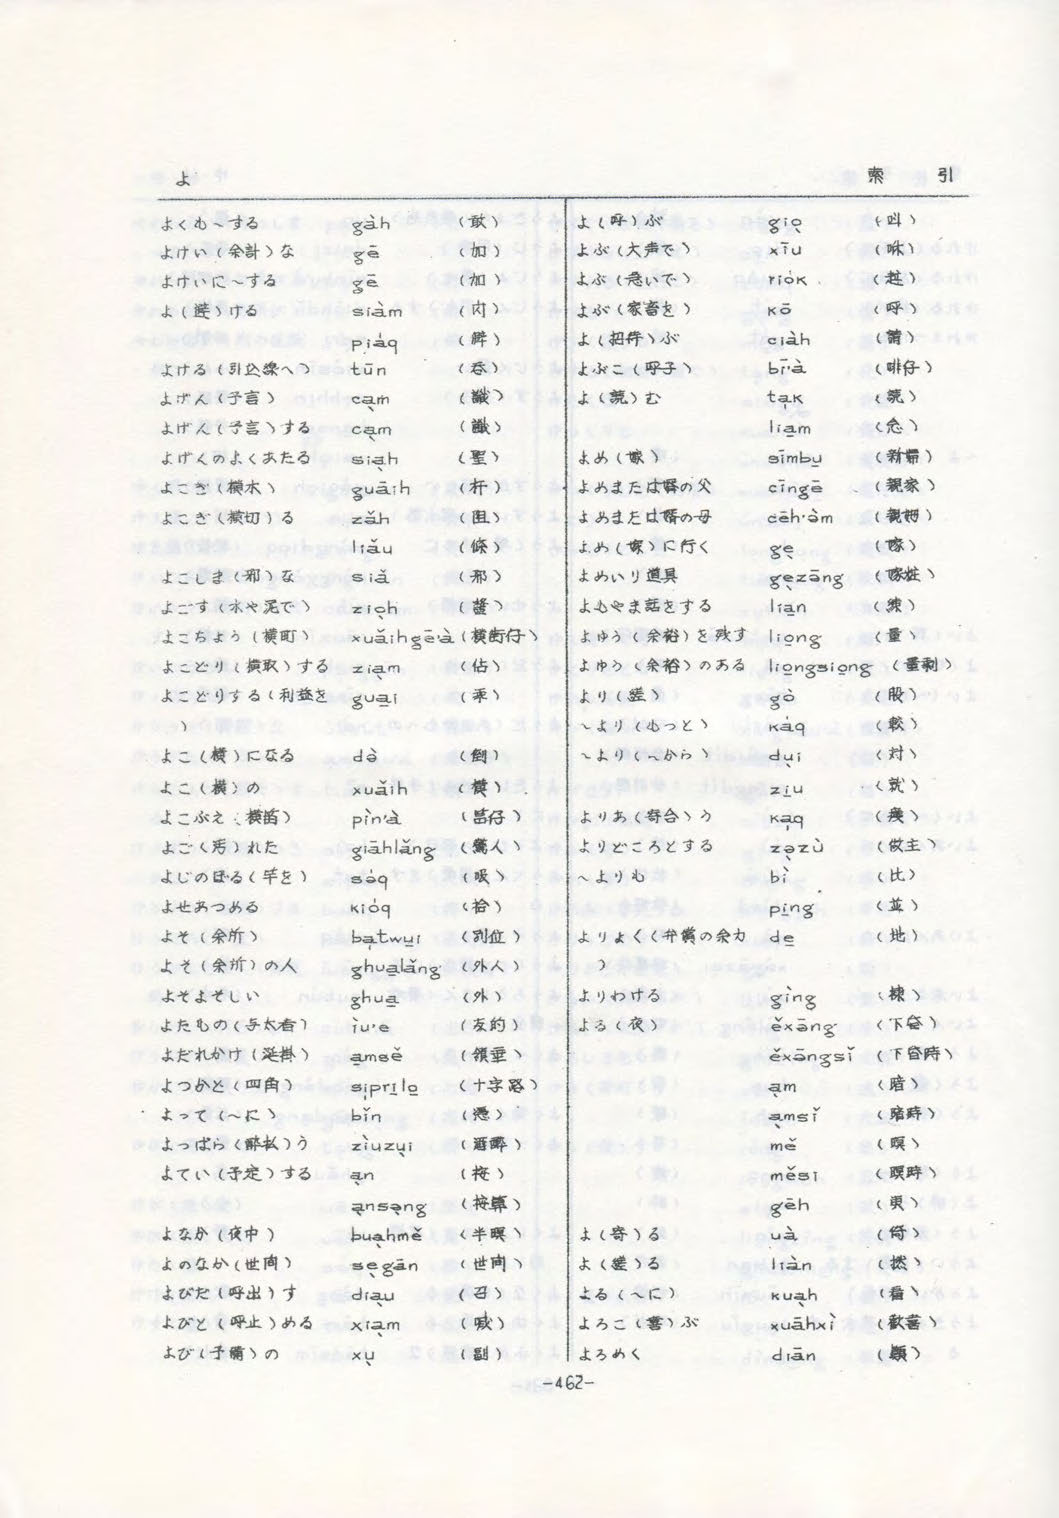 よ
索 引
よくも〜する gàh (敢)
よけい(余計)な gē (加)
よけいに〜する gē (加)
よ(避)ける siàm (闪)
piáq (辟)
よける(引込線へ) tūn (吞)
よげん(予言) cạm (讖)
よげん(予言)する cạm (讖)
よげんのよくあたる siạh (聖)
よこぎ(横木) guāih (杆)
よこぎ(横切)る zǎh
liǎu
よこしま(邪)な siǎ (邪)
よごす(水や泥で) ziọh
よこちょう(横町) xuǎihgēà (横街仔)
よこどり(横取)する ziạm (佔)
よこどりする(利益を) gua̱i
よこ(横)になる dà (倒)
よこ(横)の xuǎih (横)
よこぶえ(横笛) pìn·à
よご(汚)れた giāhlǎng
よじのぼる(竿を) sóq (吸)
よせあつめる kióq (拾)
よそ(余所) bạtwu̱i (別位)
よそ(余所)の人 ghua̱lǎng (外人)
よそよそしい ghua̱ (外)
よたもの(与太者) ìu·e (友的)
よだれかけ(涎掛) a̱msě (領垂)
よつかど(四角) sịpri̱lo̱ (十字路)
よって(〜に) bǐn (憑)
よっぱら(酔払)う zìuzụi (酒醉)
よてい(予定)する ạn (按)
ạnsạng (按算)
よなか(夜中) buạhmě (半暝)
よのなか(世間) sẹgān (世間)
よびだ(呼出)す diạu (召)
よびと(呼止)める xiạm (喊)
よび(予備)の xụ (副)
よ(呼)ぶ giọ (叫)
よぶ(大声で) xīu (咻)
よぶ(急いで) riók (趒)
よぶ(家畜を) kō (呼)
よ(招待)ぶ ciàh (請)
よぶこ(呼子) bī·à (啡仔)
よ(読)む tạk (読)
lia̱m (念)
よめ(嫁) sīmbu̱ (新婦)
よめまたは婿の父 cīngē (親家)
よめまたは婿の母 cēh·àm (親姆)
よめ(嫁)に行く gẹ (嫁)
よめいり道具 gẹzāng (嫁粧)
よもやま話をする lia̱n
よゆう(余裕)を残す lio̱ng (量)
よゆう(余裕)のある lio̱ngsio̱ng (量剰)
より(縒) gò (股)
〜より(もっと) káq (較)
〜より(〜から) dụi (対)
zi̱u (就)
よりあ(寄合)う kạq
よりどころとする zạzù (做主)
〜よりも bì (比)
pi̱ng (並)
よりよく(弁償の余力) de̱ (地)
よりわける gìng (揀)
よる(夜) ěxāng (下昏)
ěxāngsǐ (下昏時)
ạm (暗)
ạmsǐ (暗時)
mě (暝)
měsǐ (暝時)
gēh (更)
よ(寄)る uà (倚)
よ(縒)る liàn (撚)
よる(〜に) kuạh (看)
よろこ(喜)ぶ xuāhxì (歓喜)
よろめく diān (顛)
-462-